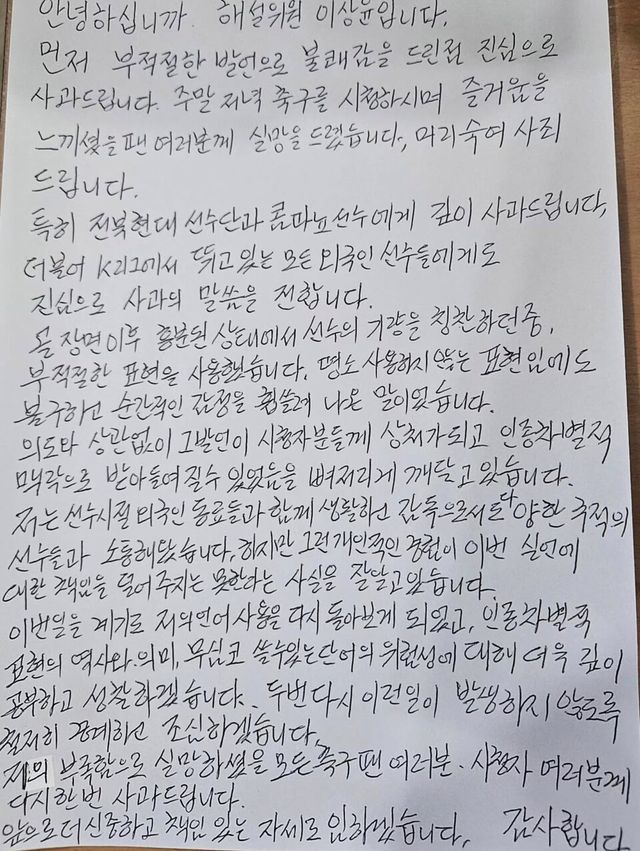 안녕하십니까. 해설위원 이상윤입니다.
먼저 부적절한 발언으로 불쾌감을 드린점 진심으로
사과드립니다. 주말 저녁 축구를 시청하시며 즐거움을
느끼셨을 팬 여러분께 실망을 드렸습니다, 머리숙여 사죄
드립니다.
특히 전북현대 선수단과 콤파뇨선수에게 깊이 사과드립니다,
더불어 K리그에서 뛰고 있는 모든 외국인 선수들에게도
진심으로 사과의 말씀을 전합니다.
골 장면이후 흥분된 상태에서 선수의 기량을 칭찬하던중,
부적절한 표현을 사용했습니다. 평소 사용하지 않는 표현임에도
불구하고 순간적인 감정을 휩쓸려 나온 말이었습니다.
의도와 상관없이 그발언이 시청자분들께 상처가되고 인종차별적
맥락으로 받아들여질수 있었음을 뼈저리게 깨닫고 있습니다.
저는 선수시절 외국인 동료들과 함께 생활하고 감독으로서도 다양한 국적의
선수들과 소통해왔습니다, 하지만 그런개인적인 경험이 이번 실언에
대한 책임을 덜어 주지는 못한다는 사실을 잘알고있습니다.
이번일을 계기로 저의언어 사용을 다시 돌아보게 되었고, 인종차별적
표현의 역사와 의미, 무심코 쓸수있는단어의 위험성에 대해 더욱 깊이
공부하고 성찰하겠습니다. 두번다시 이런일이 발생하지 않도록
철저히 경계하고 조심하겠습니다,
저의 부족함으로 실망하셨을 모든 축구 팬 여러분. 시청자 여러분께
다시한번 사과드립니다.
앞으로 더 신중하고 책임 있는 자세로 임하겠습니다, 감사합니다